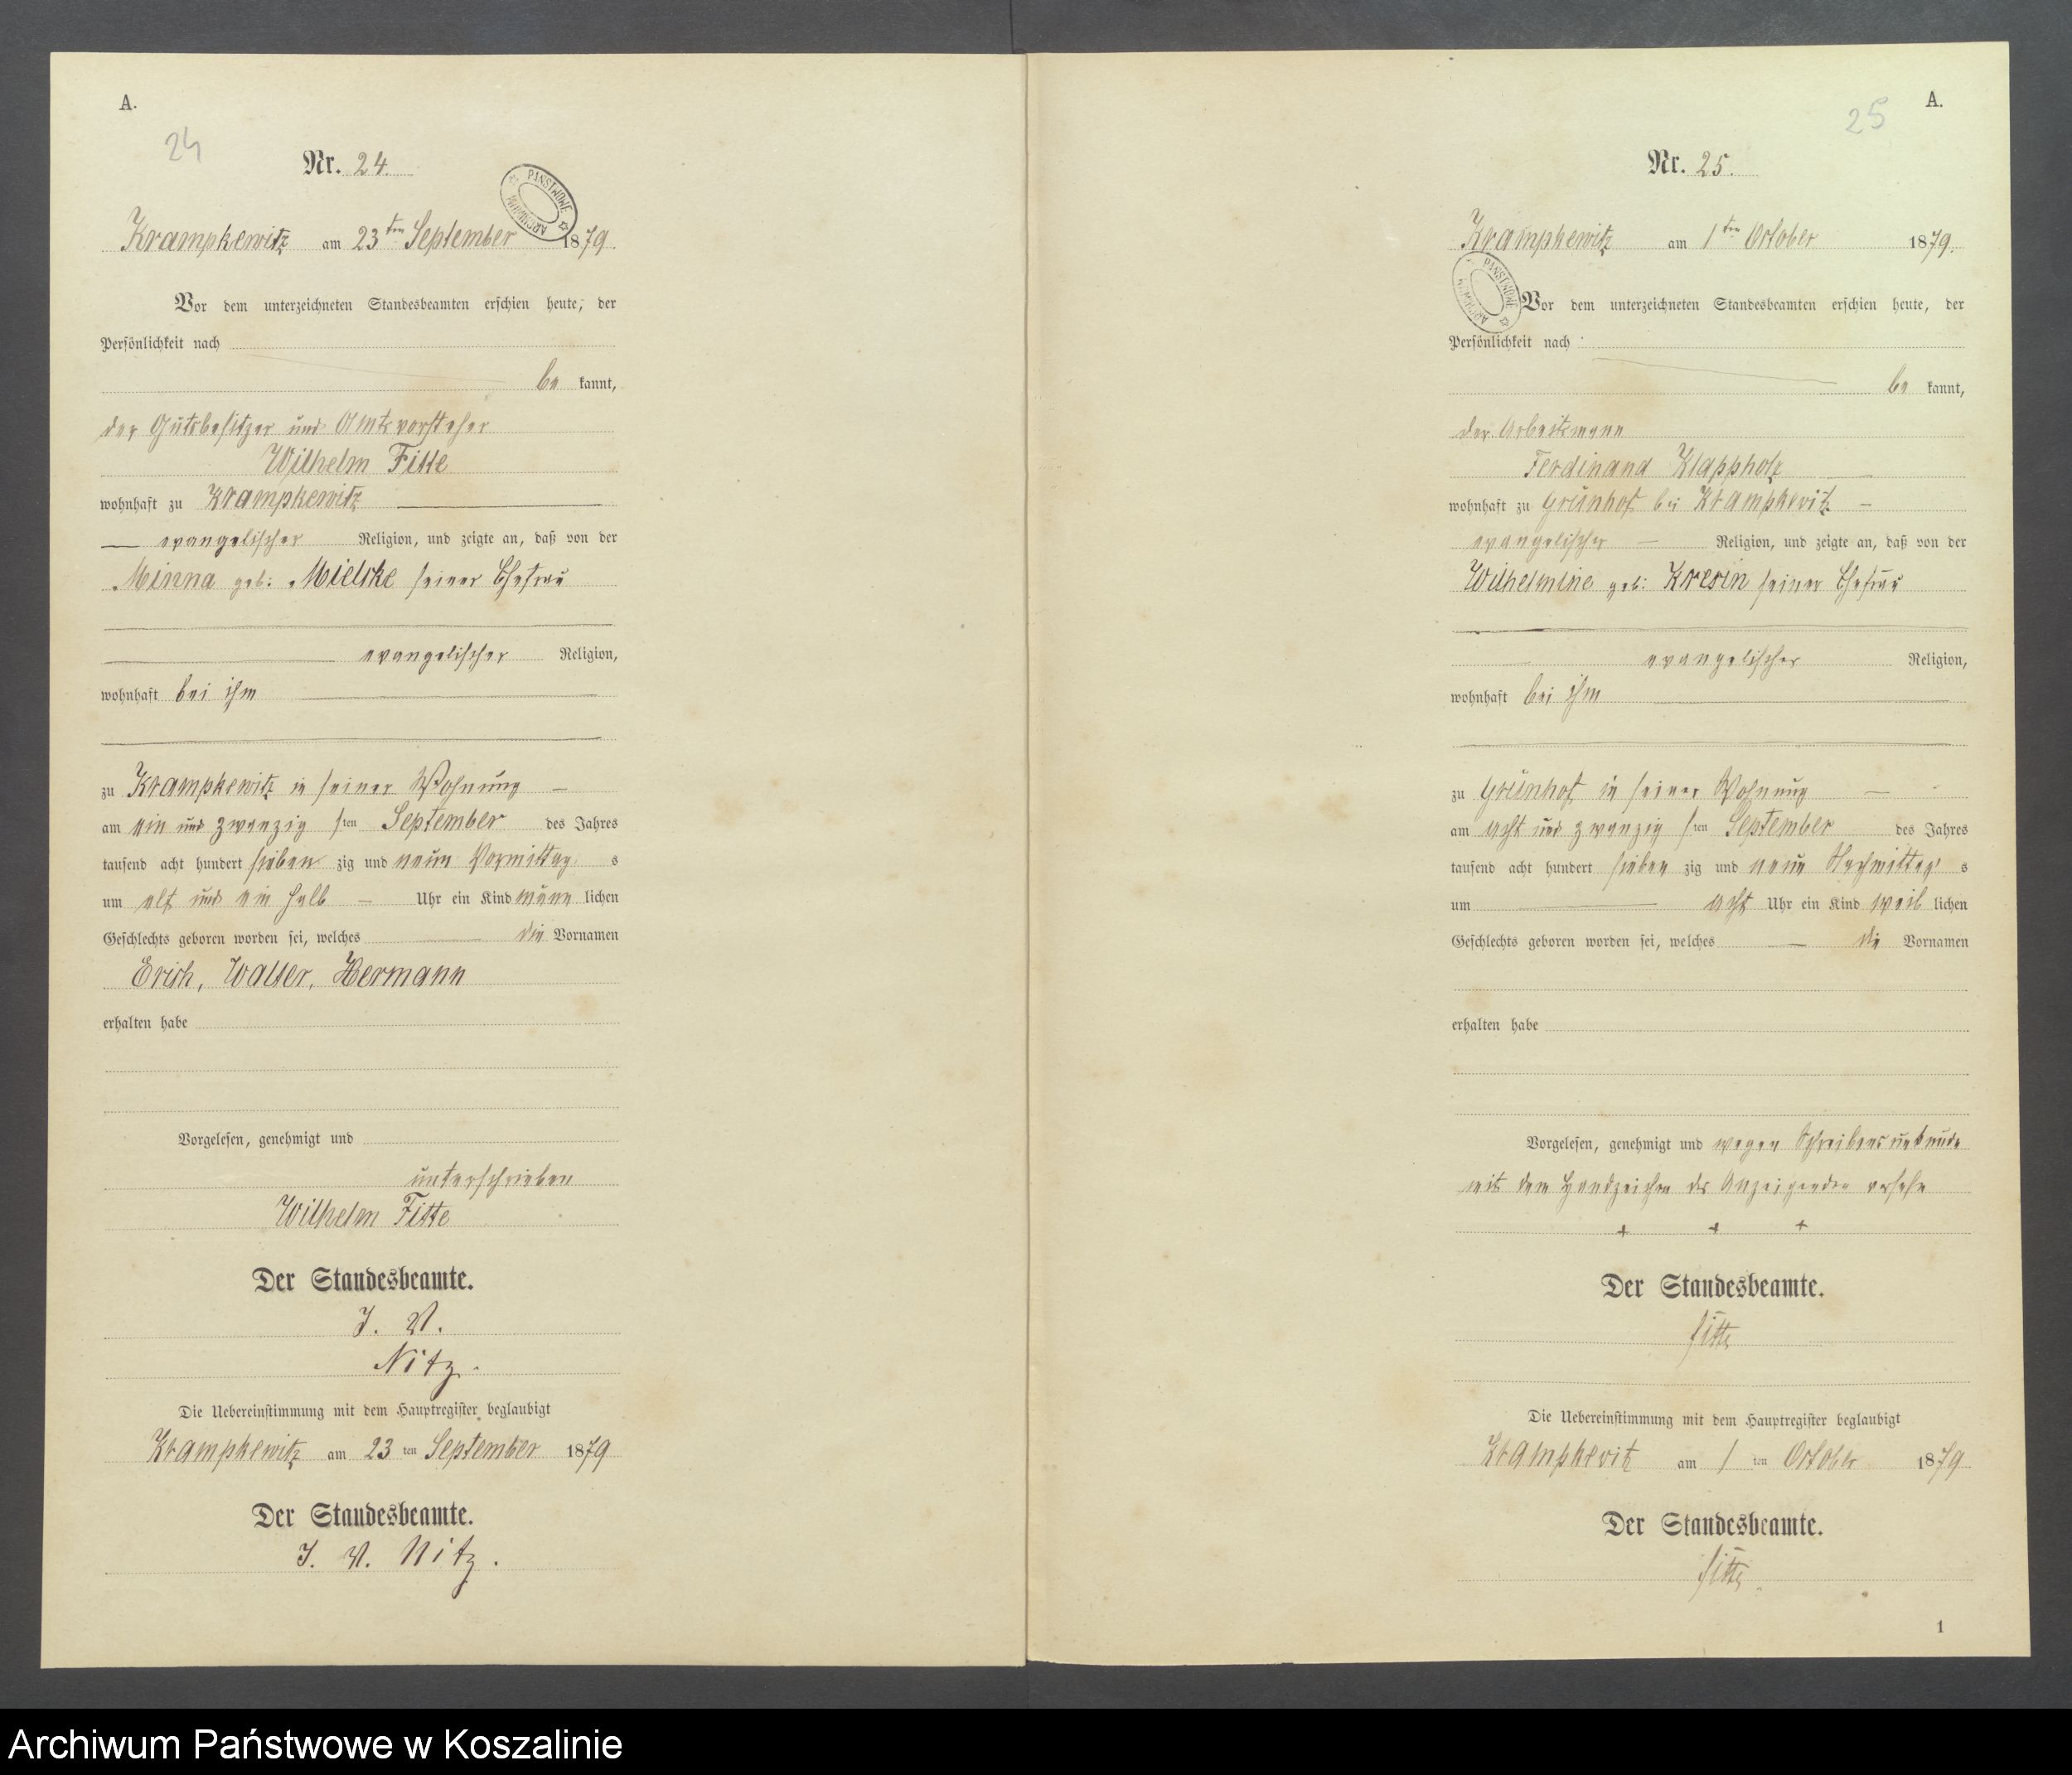 A.
24
Nr. 24.
PAŃSTWOWE ARCHIWUM
Krampkewitz am 23ten September 1879.
Vor dem unterzeichneten Standesbeamten erschien heute, der
Persönlichkeit nach
be kannt,
der Gutsbesitzer und Amtsvorsteher
Wilhelm Fitte
wohnhaft zu Krampkewitz
evangelischer Religion, und zeigte an, daß von der
Minna geb: Mielcke seiner Ehefrau
evangelischer Religion,
wohnhaft bei ihm
zu Krampkewitz in seiner Wohnung
am ein und zwanzig sten September des Jahres
tausend acht hundert sieben zig und neun Vormittag s
um elf und ein halb Uhr ein Kind männ lichen
Geschlechts geboren worden sei, welches die Vornamen
Erich, Walter, Hermann
erhalten habe
Vorgelesen, genehmigt und
unterschrieben
Wilhelm Fitte
Der Standesbeamte.
J. V.
Nitz.
Die Uebereinstimmung mit dem Hauptregister beglaubigt
Krampkewitz am 23 ten September 1879
Der Standesbeamte.
J. V. Nitz.
A.
25
Nr. 25.
Krampkewitz am 1ten October 1879.
PAŃSTWOWE ARCHIWUM
Vor dem unterzeichneten Standesbeamten erschien heute, der
Persönlichkeit nach
be kannt,
der Arbeitsmann
Ferdinand Klappholz
wohnhaft zu Grünhof bei Krampkewitz
evangelischer Religion, und zeigte an, daß von der
Wilhelmine geb: Kresin seiner Ehefrau
evangelischer Religion,
wohnhaft bei ihm
zu Grünhof in seiner Wohnung
am acht und zwanzig sten September des Jahres
tausend acht hundert sieben zig und neun Nachmittag s
um acht Uhr ein Kind weib lichen
Geschlechts geboren worden sei, welches die Vornamen
erhalten habe
Vorgelesen, genehmigt und wegen Schreibensunkunde
mit dem Handzeichen des Anzeigenden versehn
+ + +
Der Standesbeamte.
Fitte
Die Uebereinstimmung mit dem Hauptregister beglaubigt
Krampkewitz am 1 ten October 1879
Der Standesbeamte.
Fitte
1
Archiwum Państwowe w Koszalinie